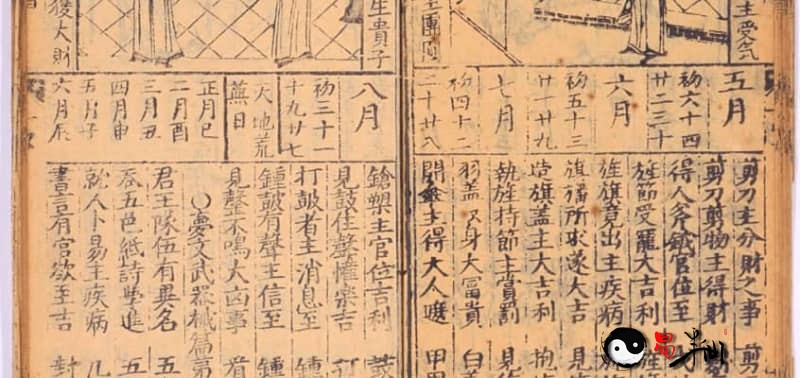 主受気
生貴子
獲大財
五月
初六十四
廿二三十
六月
初五十三
廿一廿九
七月
初四十二
二十廿八
八月
初三十一
十九廿七
天地荒
蕪日
正月巳
二月酉
三月丑
四月申
五月子
六月辰
剪刀主分財之事 剪
剪刀剪物主得財
得人斧鉞官位至
旌節受寵大吉利
旌旗竟出主疾病
旗旛所求遂大吉 見
造旗蓋主大吉利 抱
執旌持節主賞罰 見
羽盖又身大富貴 白
開 主得大人遮 甲
鎗槊主官位吉利
見鼓佳聲懽樂吉 打
打鼓者主消息至 鍾
鍾鼓有聲主信至 鍾
見磬不鳴大凶事 看
○夢文武器械篇第
君王隊伍有異名 五
吞五色紙詩學進 五
就人卜易主疾病 几
書言有官欲至吉 對